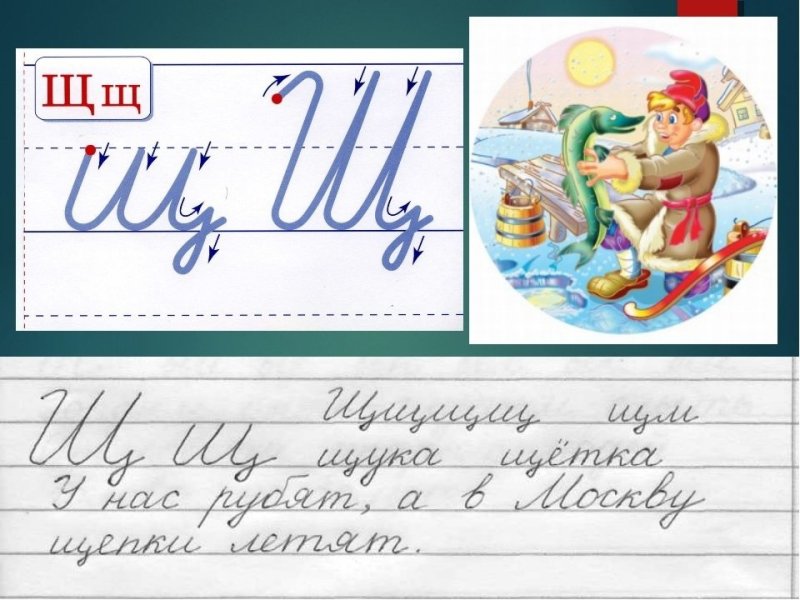 Щ щ
щ Щ
щм
Щ Щ щука щётка
У нас рубят, а в Москву
щепки летят.